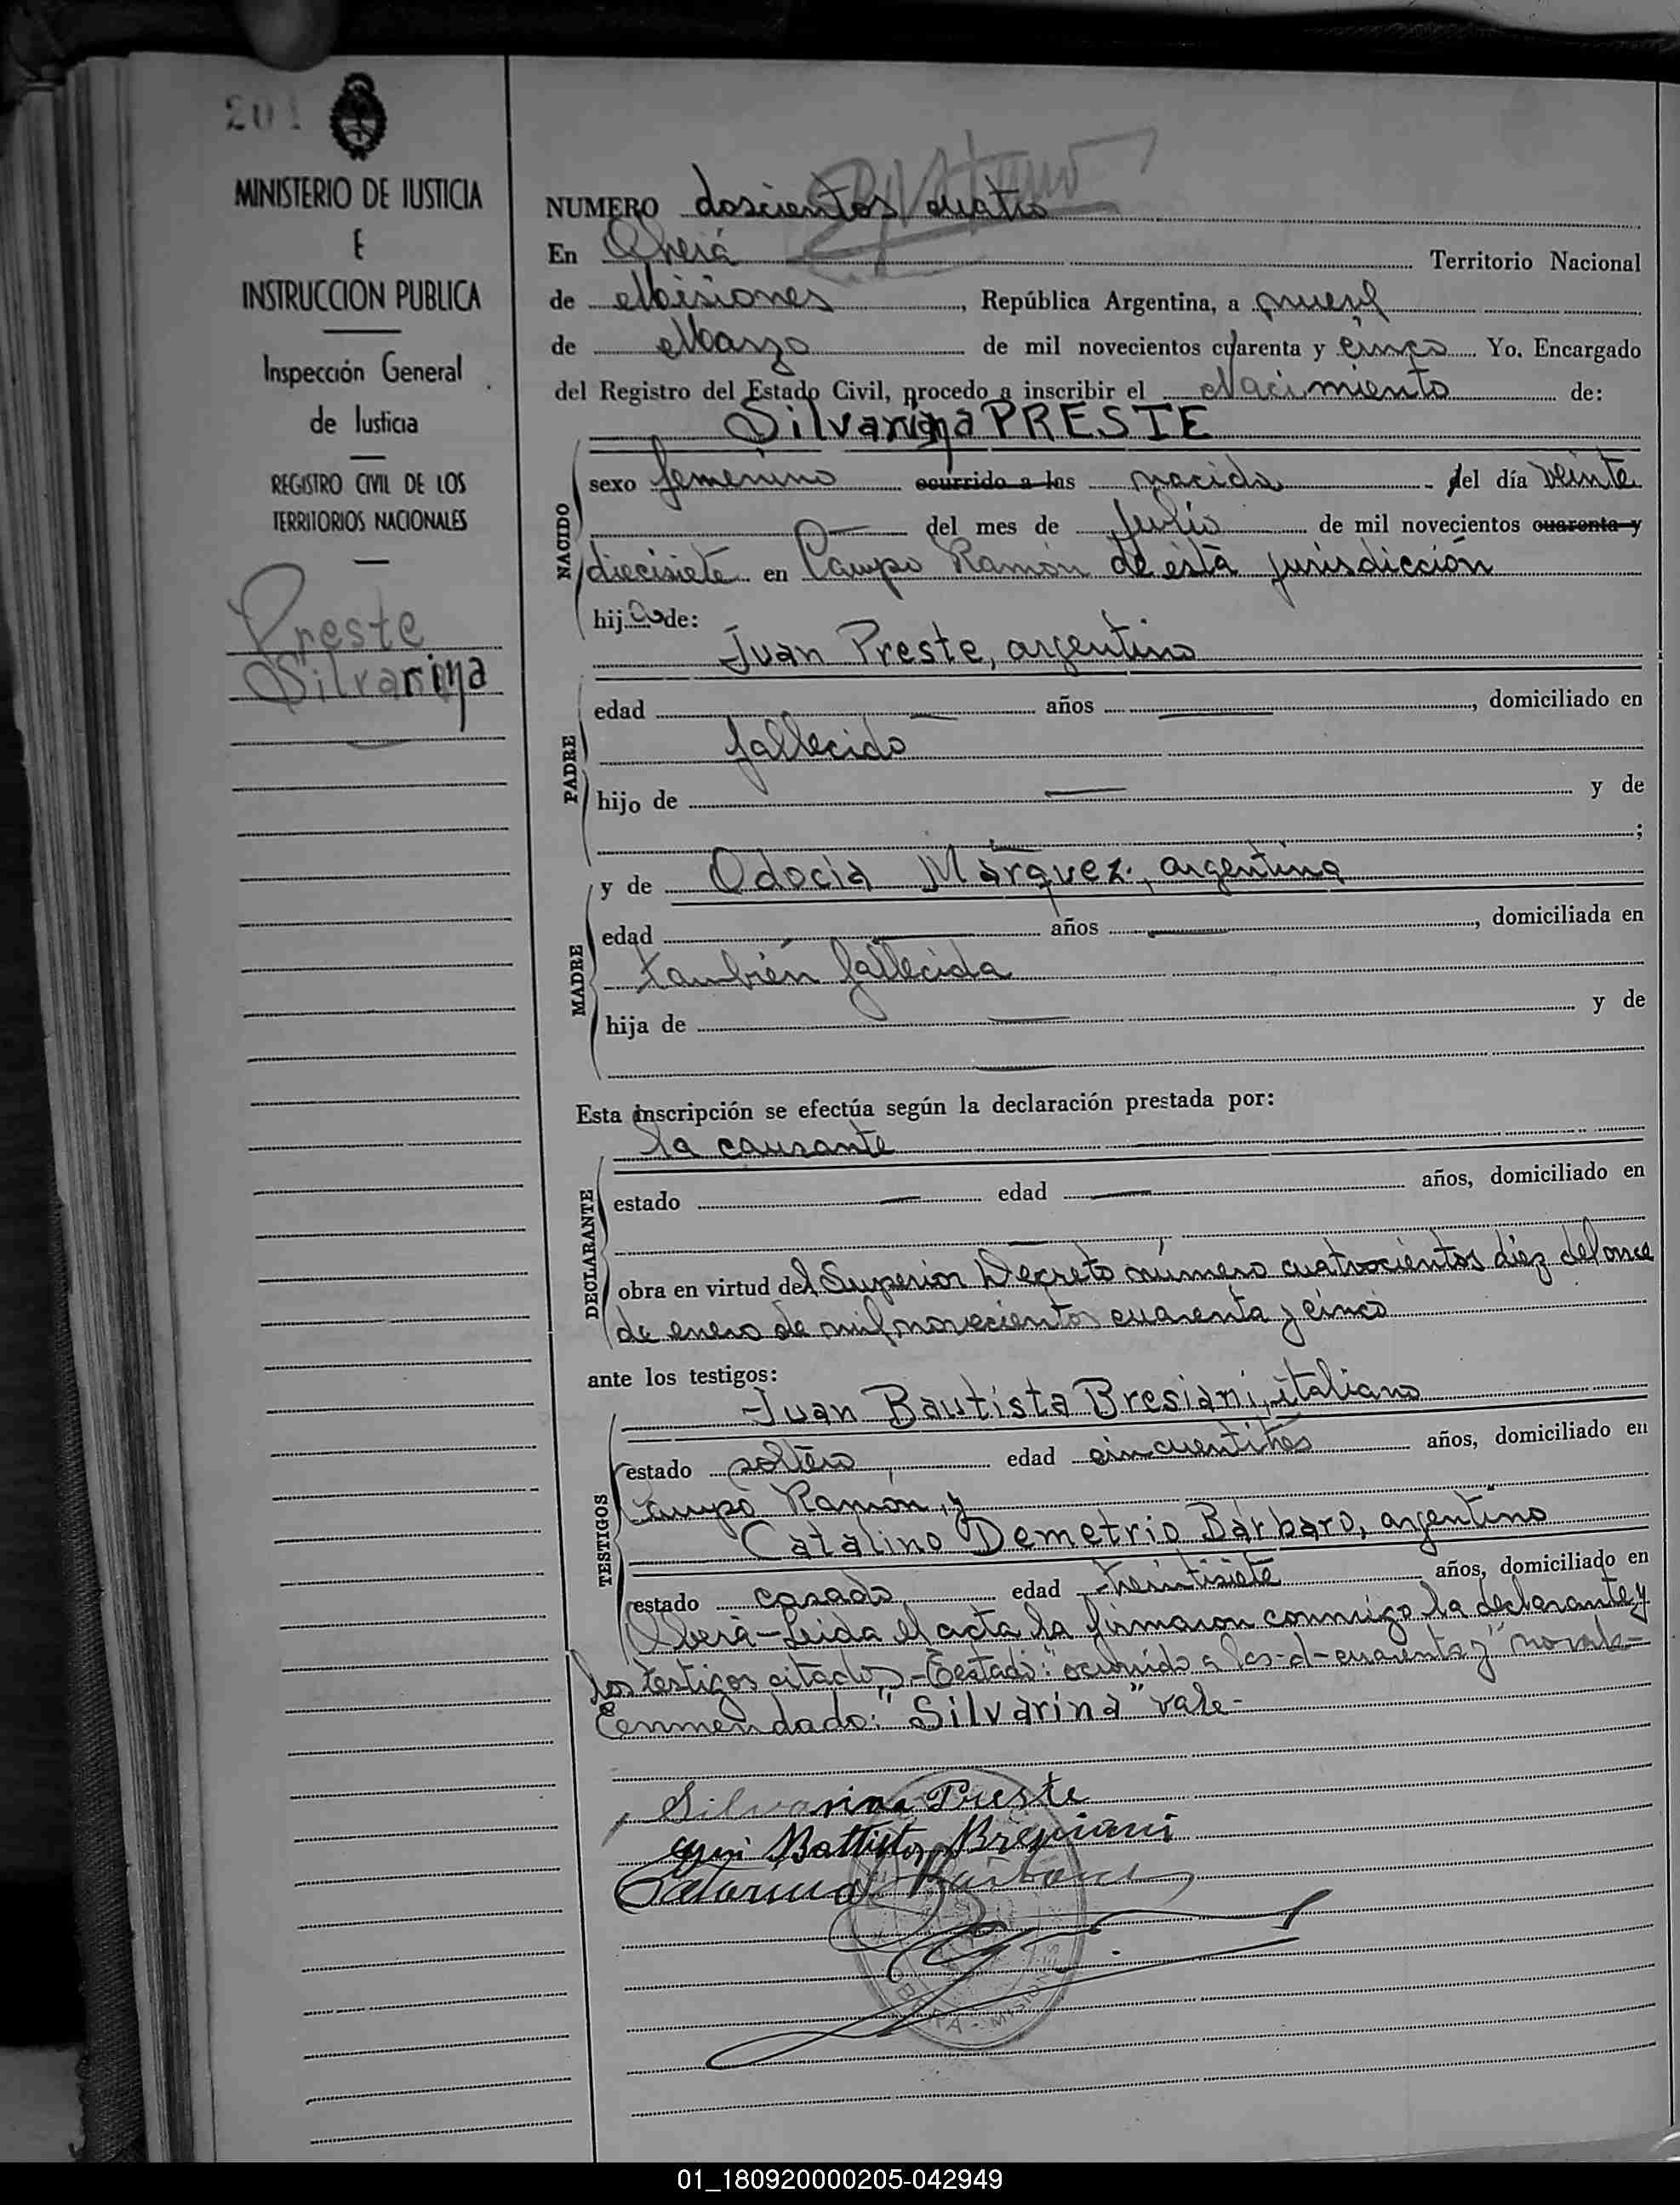 201
MINISTERIO DE JUSTICIA
E
INSTRUCCION PUBLICA
Inspección General
de Justicia
REGISTRO CIVIL DE LOS
TERRITORIOS NACIONALES
Preste
Silvarina
NUMERO doscientos cuatro
En Oberá Territorio Nacional
de Misiones, República Argentina, a nueve
de Marzo de mil novecientos cuarenta y cinco Yo. Encargado
del Registro del Estado Civil, procedo a inscribir el Nacimiento de:
Silvarina PRESTE
NACIDO
sexo femenino ocurrido a las nacida del día veinte
del mes de Julio de mil novecientos cuarenta y
diecisiete en Campo Ramón de esta jurisdicción
hija de:
Juan Preste, argentino
PADRE
edad años, domiciliado en
fallecido
hijo de y de
;
y de Odocia Márquez, argentina
MADRE
edad años, domiciliada en
también fallecida
hija de y de
Esta inscripción se efectúa según la declaración prestada por:
la causante
DECLARANTE
estado edad años, domiciliado en
obra en virtud del Superior Decreto número cuatrocientos diez del once
de enero de mil novecientos cuarenta y cinco
ante los testigos:
Juan Bautista Bresiani, italiano
TESTIGOS
estado soltero, edad cincuentitres años, domiciliado en
Campo Ramón, y
Catalino Demetrio Bárbaro, argentino
estado casado edad treintisiete años, domiciliado en
Oberá-Leida el acta la firmaron conmigo la declarante y
los testigos citados-Testado: "ocurrido a las-d-cuarenta y" no vale-
Eenmendado: "Silvarina" vale-
Silvarina Preste
Battista Bresiani
OBERA - MISIONES
01_180920000205-042949